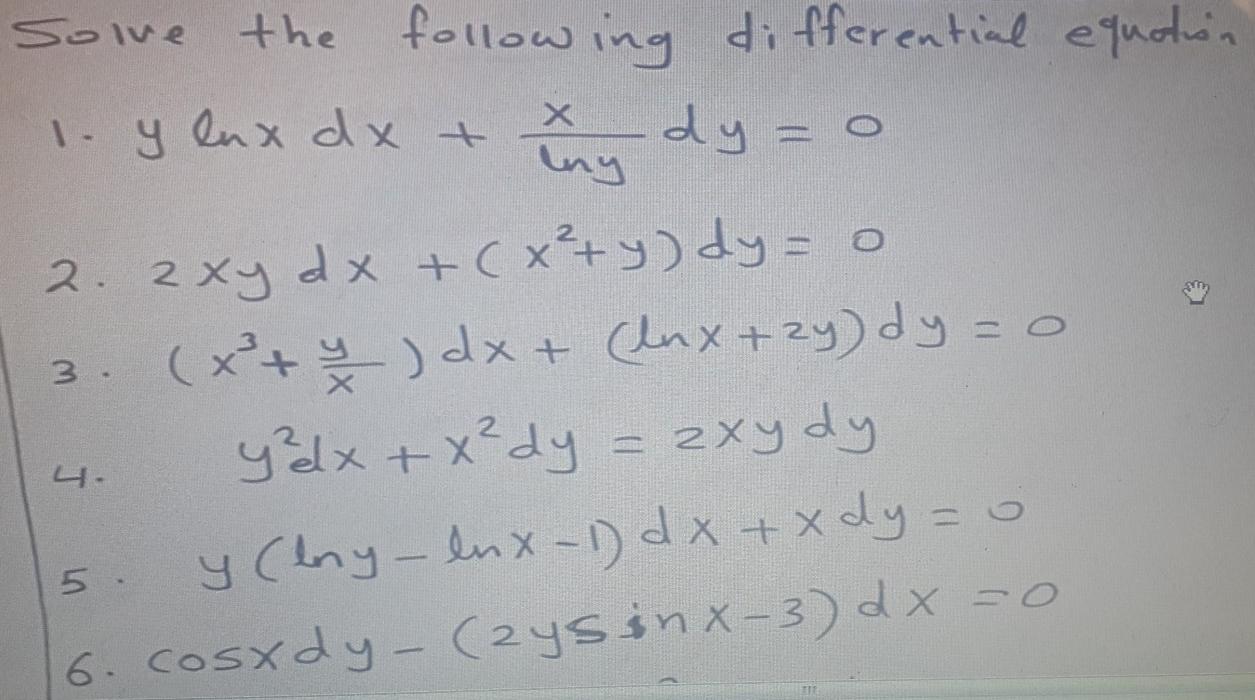 Solve the following differential equation
1. y lnx dx + x/lny dy = 0
2. 2xy dx + (x²+y) dy = 0
3. (x³ + y/x) dx + (lnx + 2y) dy = 0
4. y²dx + x²dy = 2xy dy
5. y (lny - lnx - 1) dx + x dy = 0
6. cosx dy - (2y sinx - 3) dx = 0